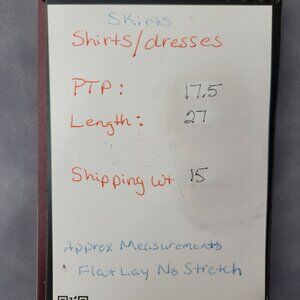 Skirts
Shirts/dresses
PTP: 17.5
Length: 27
Shipping wt 15
Approx Measurements
Flat Lay No Stretch